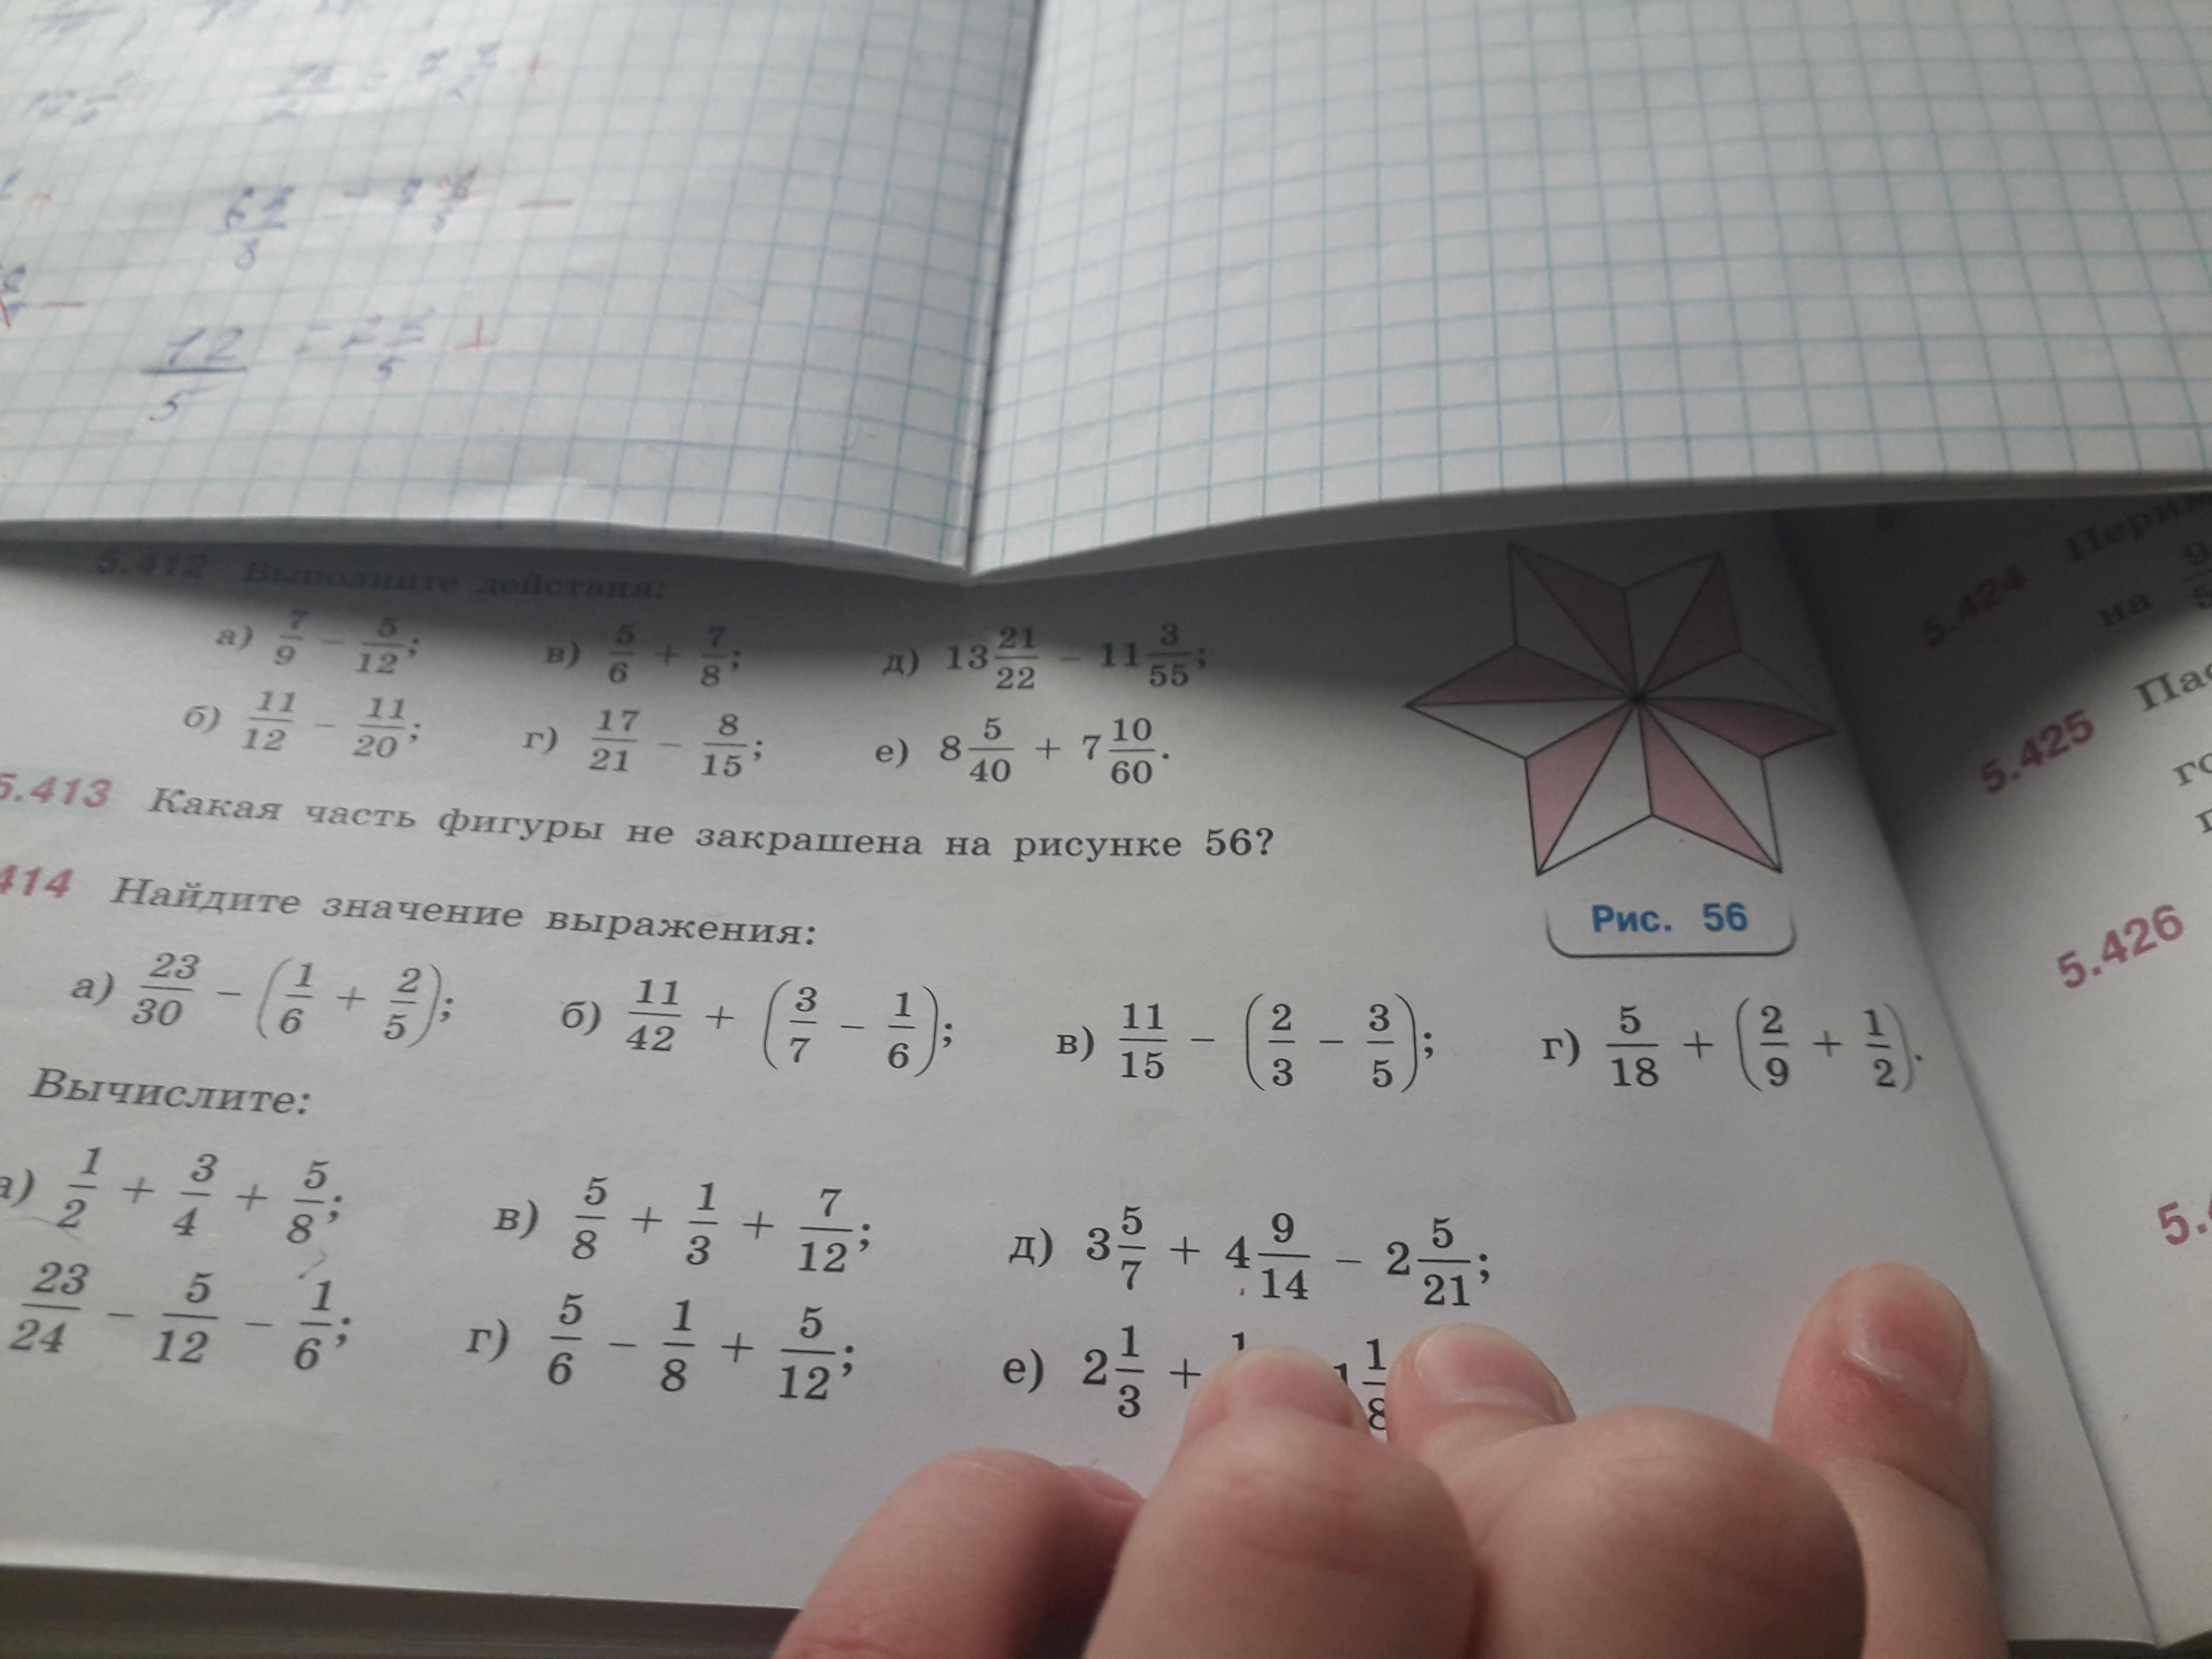 12/5
5.412 Выполните действия:
а) 7/9 − 5/12; в) 5/6 + 7/8; д) 13 21/22 − 11 3/55;
б) 11/12 − 11/20; г) 17/21 − 8/15; е) 8 5/40 + 7 10/60.
5.413 Какая часть фигуры не закрашена на рисунке 56?
Рис. 56
414 Найдите значение выражения:
а) 23/30 − (1/6 + 2/5); б) 11/42 + (3/7 − 1/6); в) 11/15 − (2/3 − 3/5); г) 5/18 + (2/9 + 1/2).
Вычислите:
а) 1/2 + 3/4 + 5/8; в) 5/8 + 1/3 + 7/12; д) 3 5/7 + 4 9/14 − 2 5/21;
23/24 − 5/12 − 1/6; г) 5/6 − 1/8 + 5/12; е) 2 1/3 + 1 1/8
5.424
на 9/5
5.425
5.426
5.